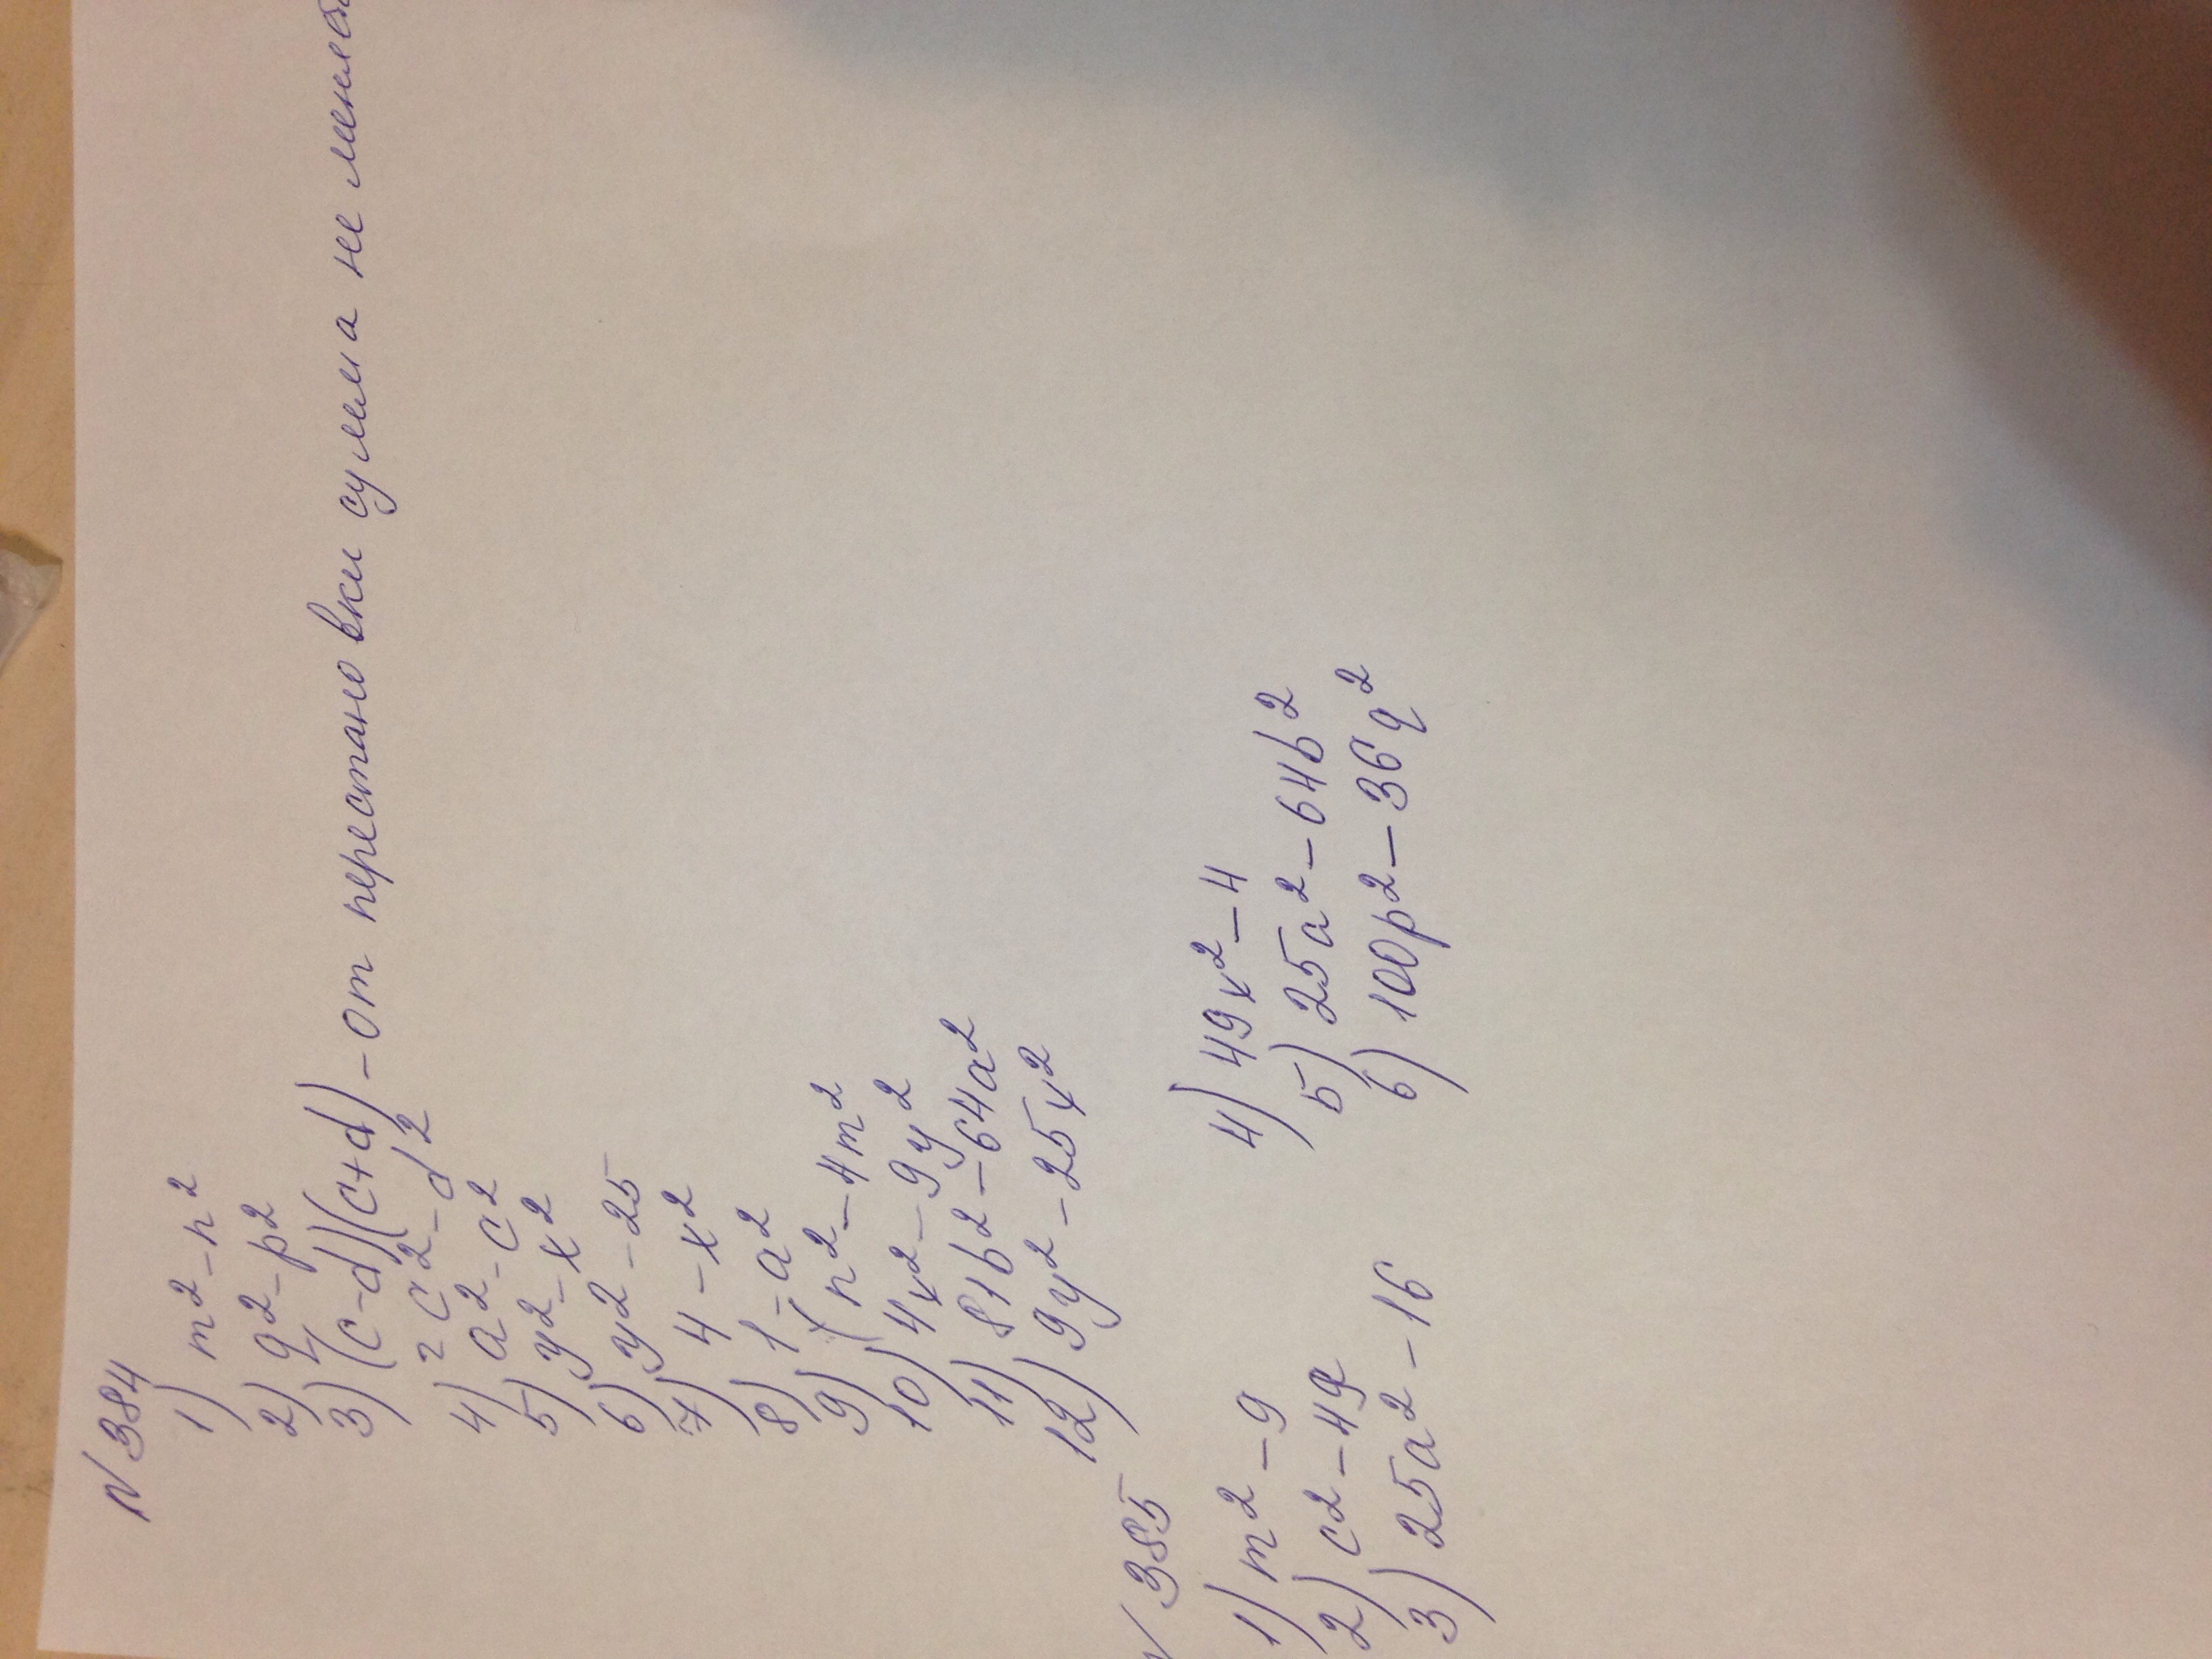 № 384
1) m² - n²
2) q² - p²
3) (c-d)(c+d) - от перестановки сумма не
= c² - d²
4) a² - c²
5) y² - x²
6) y² - 25
7) 4 - x²
8) 1 - a²
9) n² - 4m²
10) 4x² - 9y²
11) 81b² - 64a²
12) 9y² - 25x²
№ 385
1) m² - 9
2) c² - 49
3) 25a² - 16
4) 49x² - 4
5) 25a² - 64b²
6) 100p² - 36q²